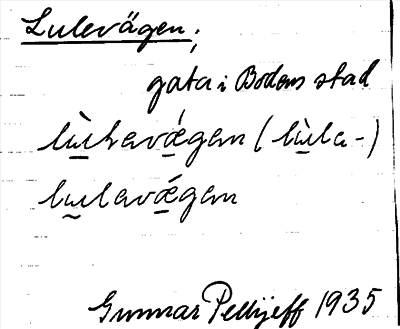 Lulevägen;
gata i Bodens stad
lù̲levǽ̲gen (lù̲la-)
lu̲levǽ̲gen
Gunnar Pellijeff 1935